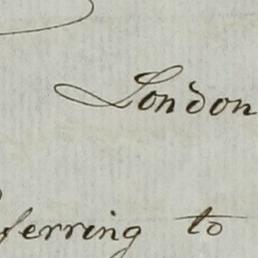 London
ferring to